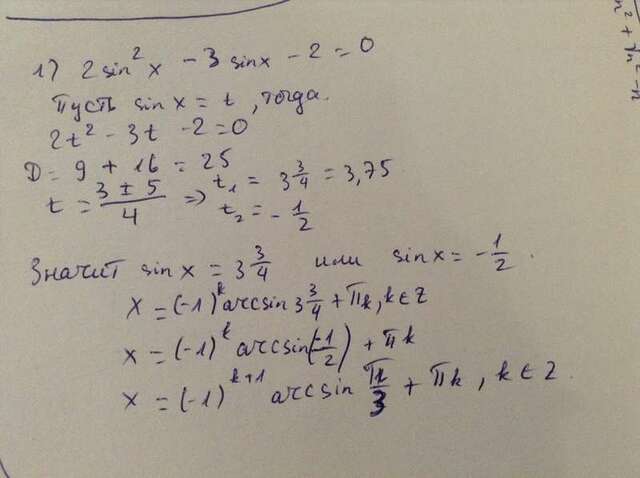 n² + √n² - n
1) 2 sin² x - 3 sin x - 2 = 0
Пусть sin x = t, тогда
2t² - 3t - 2 = 0
D = 9 + 16 = 25
t = (3 ± 5)/4 ⇒ t₁ = 3 3/4 = 3,75
t₂ = - 1/2
Значит sin x = 3 3/4 или sin x = - 1/2.
x = (-1)^k arcsin 3 3/4 + πk, k ∈ Z
x = (-1)^k arcsin(-1/2) + πk
x = (-1)^(k+1) arcsin π/3 + πk, k ∈ Z.